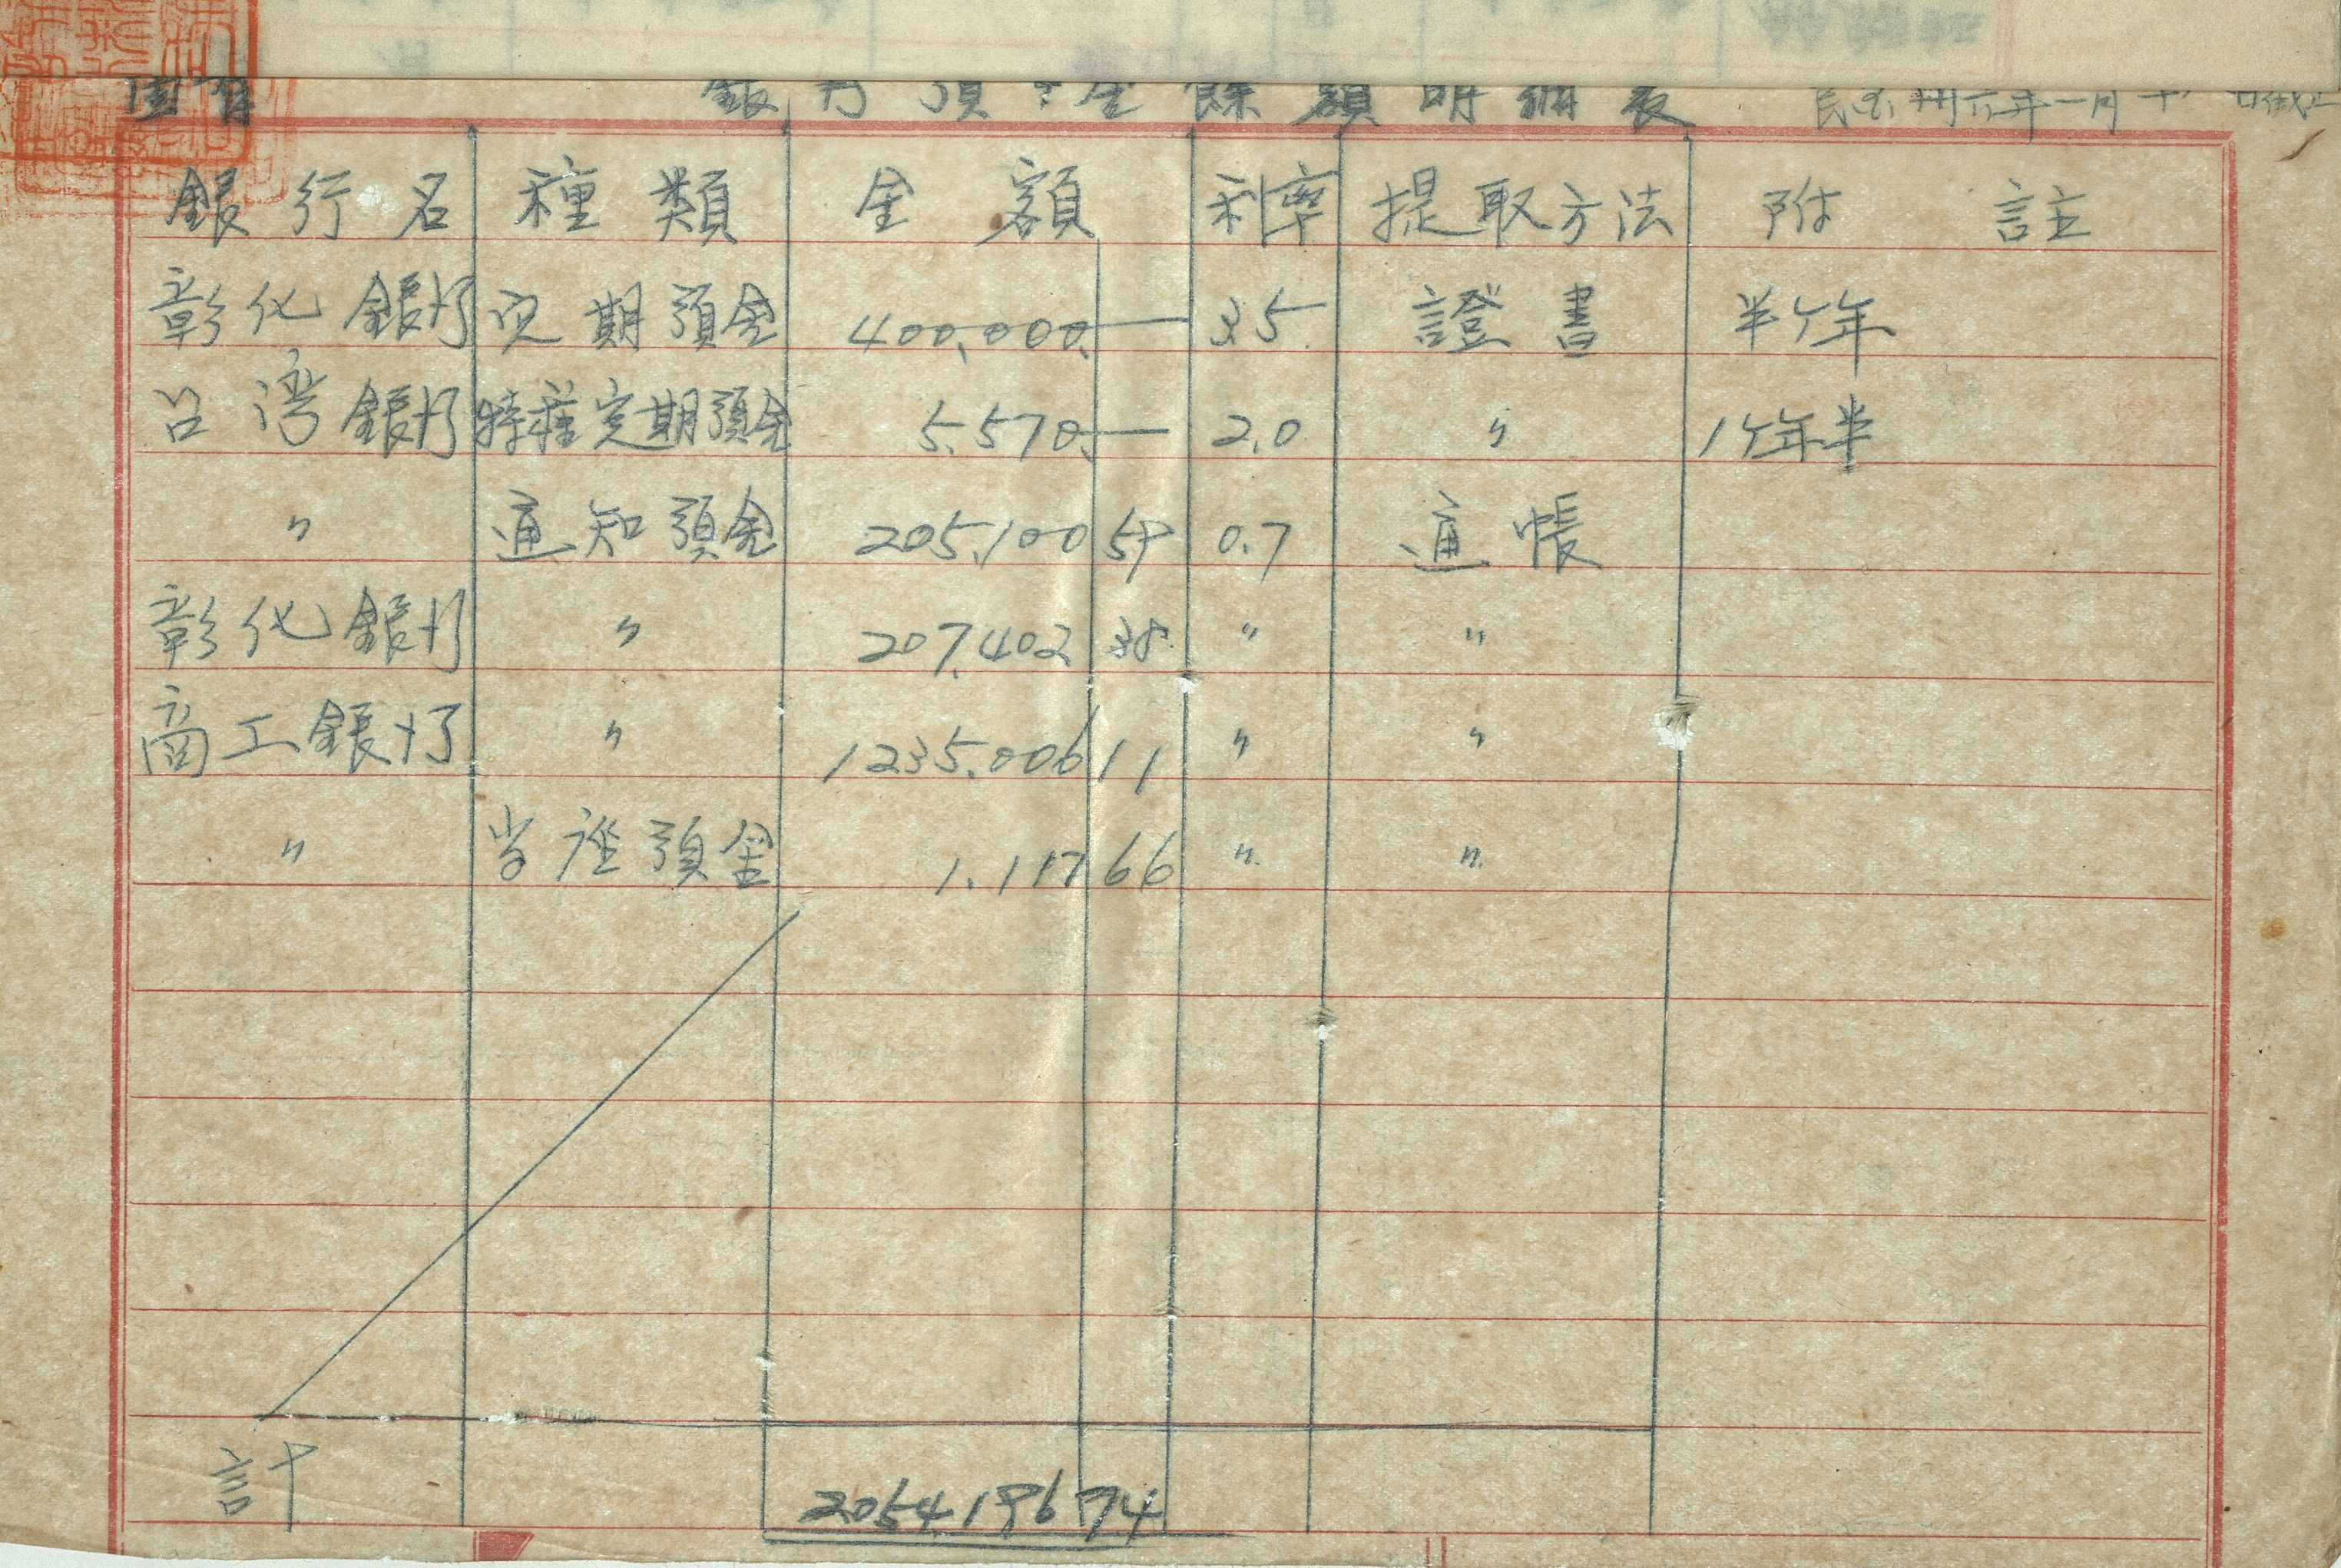 銀行預金餘額明細表 民国卅六年一月
銀行名 種類 金額 利率 提取方法 附註
彰化銀行 定期預金 400,000.— 3.5 證書 半ケ年
台湾銀行 特種定期預金 5.570.— 2.0 〃 1ケ年半
〃 通知預金 205.100 59 0.7 通帳
彰化銀行 〃 207.402 38 〃 〃
商工銀行 〃 1235.006 11 〃 〃
〃 当座預金 1.117 66 〃 〃
計 2054196 74